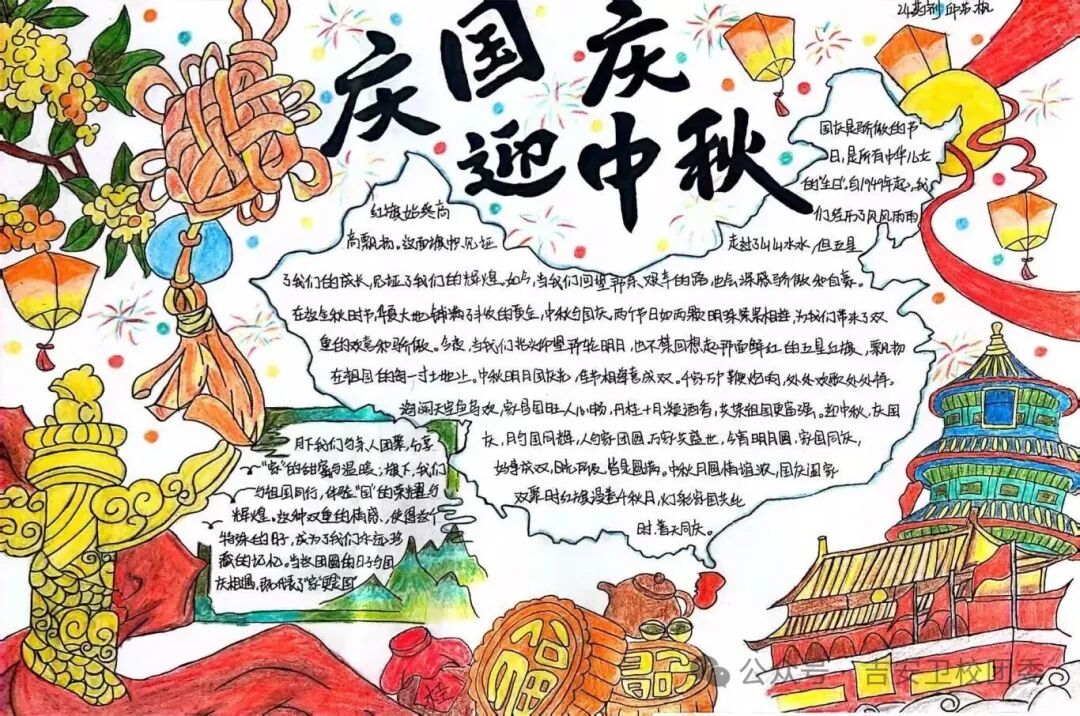 24药剂 邱若枫
庆国庆
迎中秋
国庆是骄傲的节
日，是所有中华儿女
的"生日"。自1949年起，我
们经历了风风雨雨
走过了山山水水，但五星
红旗始终高
高飘扬。这面旗帜见证
了我们的成长，见证了我们的辉煌。如今，当我们回望那条艰辛的路，也会深感骄傲和自豪。
在这金秋时节，大地铺满了丰收的黄金，中秋与国庆，两个节日如两颗明珠紧紧相连，为我们带来了双
重的欢喜和骄傲。今夜，当我们共次仰望那轮明月，也不禁回想起那面鲜红的五星红旗，飘扬
在祖国的每一寸土地上。中秋明月国庆光，佳节相逢喜成双。千家万户鞭炮响，处处欢歌处处祥。
海阔天空鱼鸟欢，家昌国旺人心畅，丹桂十月凝酒香，共祭祖国更富强。迎中秋，庆国
庆，日与国同辉，人与家团圆，万家共盛世，今宵明月圆，家国同庆，
好事成双，目光所及，皆是圆满。中秋月圆情谊浓，国庆阖家
双靠时红旗漫卷千秋月，灯彩家国共此
时，普天同庆。
月下我们与亲人团聚，分享
"家"的甜蜜与温暖；旗下，我们
与祖国同行，体验"国"的荣耀与
辉煌。这种双重的情感，使得这个
特殊的日子，成为了我们永远珍
藏的记忆。当这团圆的日与国
庆相遇，既代表了"家"更是"国"
福
桂
公众号 · 吉安卫校团委